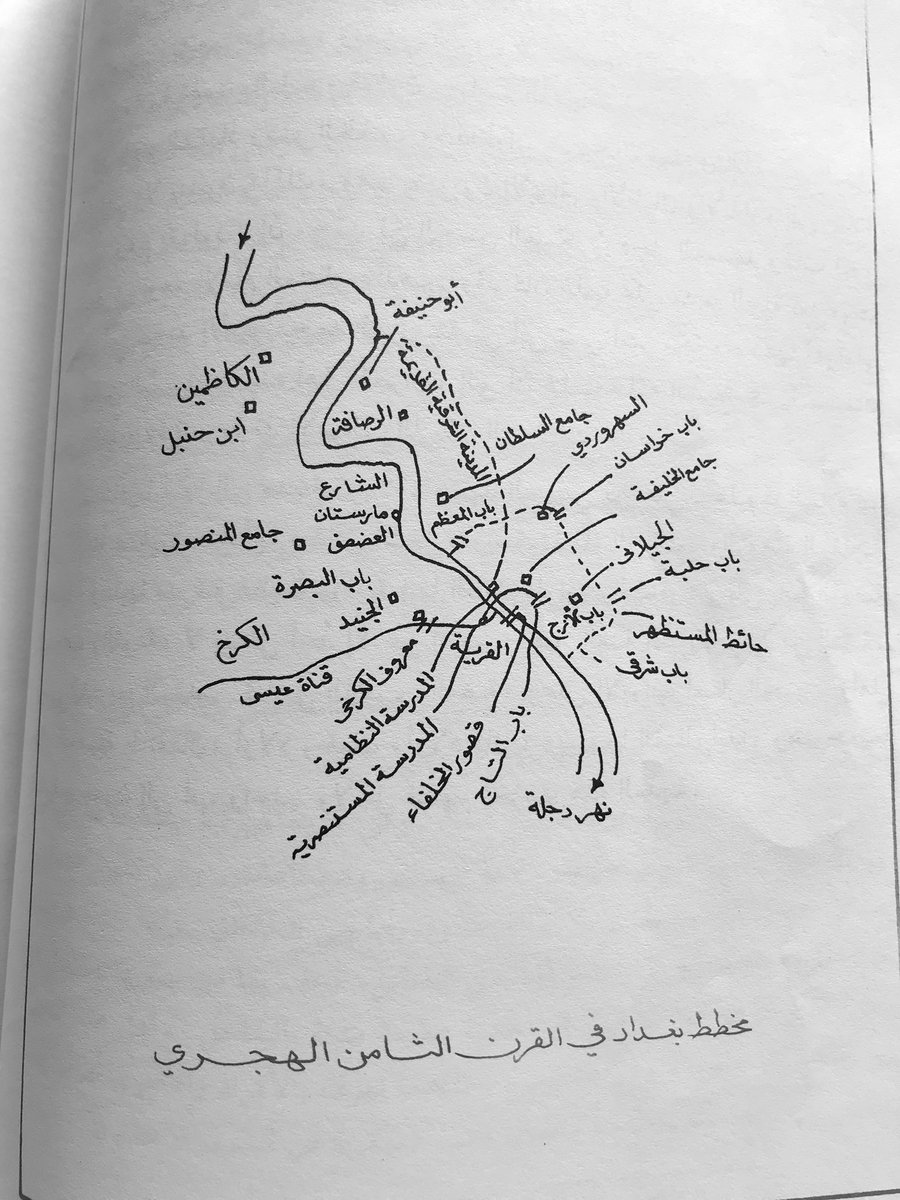 أبو حنيفة
الكاظمين
ابن حنبل
الرصافة
المدينة الشرقية القديمة
جامع السلطان
السهروردي
باب خراسان
جامع الخليفة
الشارع
مارستان
العضدي
باب المعظم
جامع المنصور
باب البصرة
الجنيد
الكرخ
قناة عيسى
معروف الكرخي
القرية
الجيلاني
باب حلبة
باب الأزج
حائط المستظهر
باب شرقي
المدرسة النظامية
المدرسة المستنصرية
قصور الخلفاء
باب التاج
نهر دجلة
مخطط بغداد في القرن الثامن الهجري